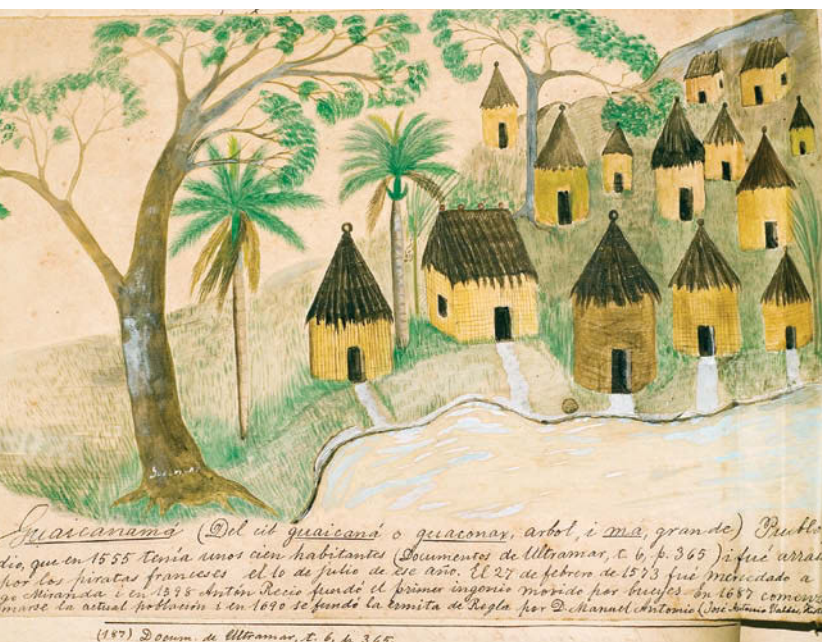 Guaicanamá (Del cit guaicaná o guaconax, arbol, i ma, grande) Pueblo
dio, que en 1555 tenía unos cien habitantes (Documentos de Ultramar, t. 6, p. 365) i fué arra
por los piratas franceses el 10 de julio de ese año. El 27 de febrero de 1573 fué mercedado a
go Miranda i en 1598 Antón Recio fundó el primer ingenio movido por bueyes en 1687 comenz
marse la actual población i en 1690 se fundó la ermita de Regla por D. Manuel Antonio (José Antonio Valdés, Hist
(187) Docum. de Ultramar, t. 6, p. 365